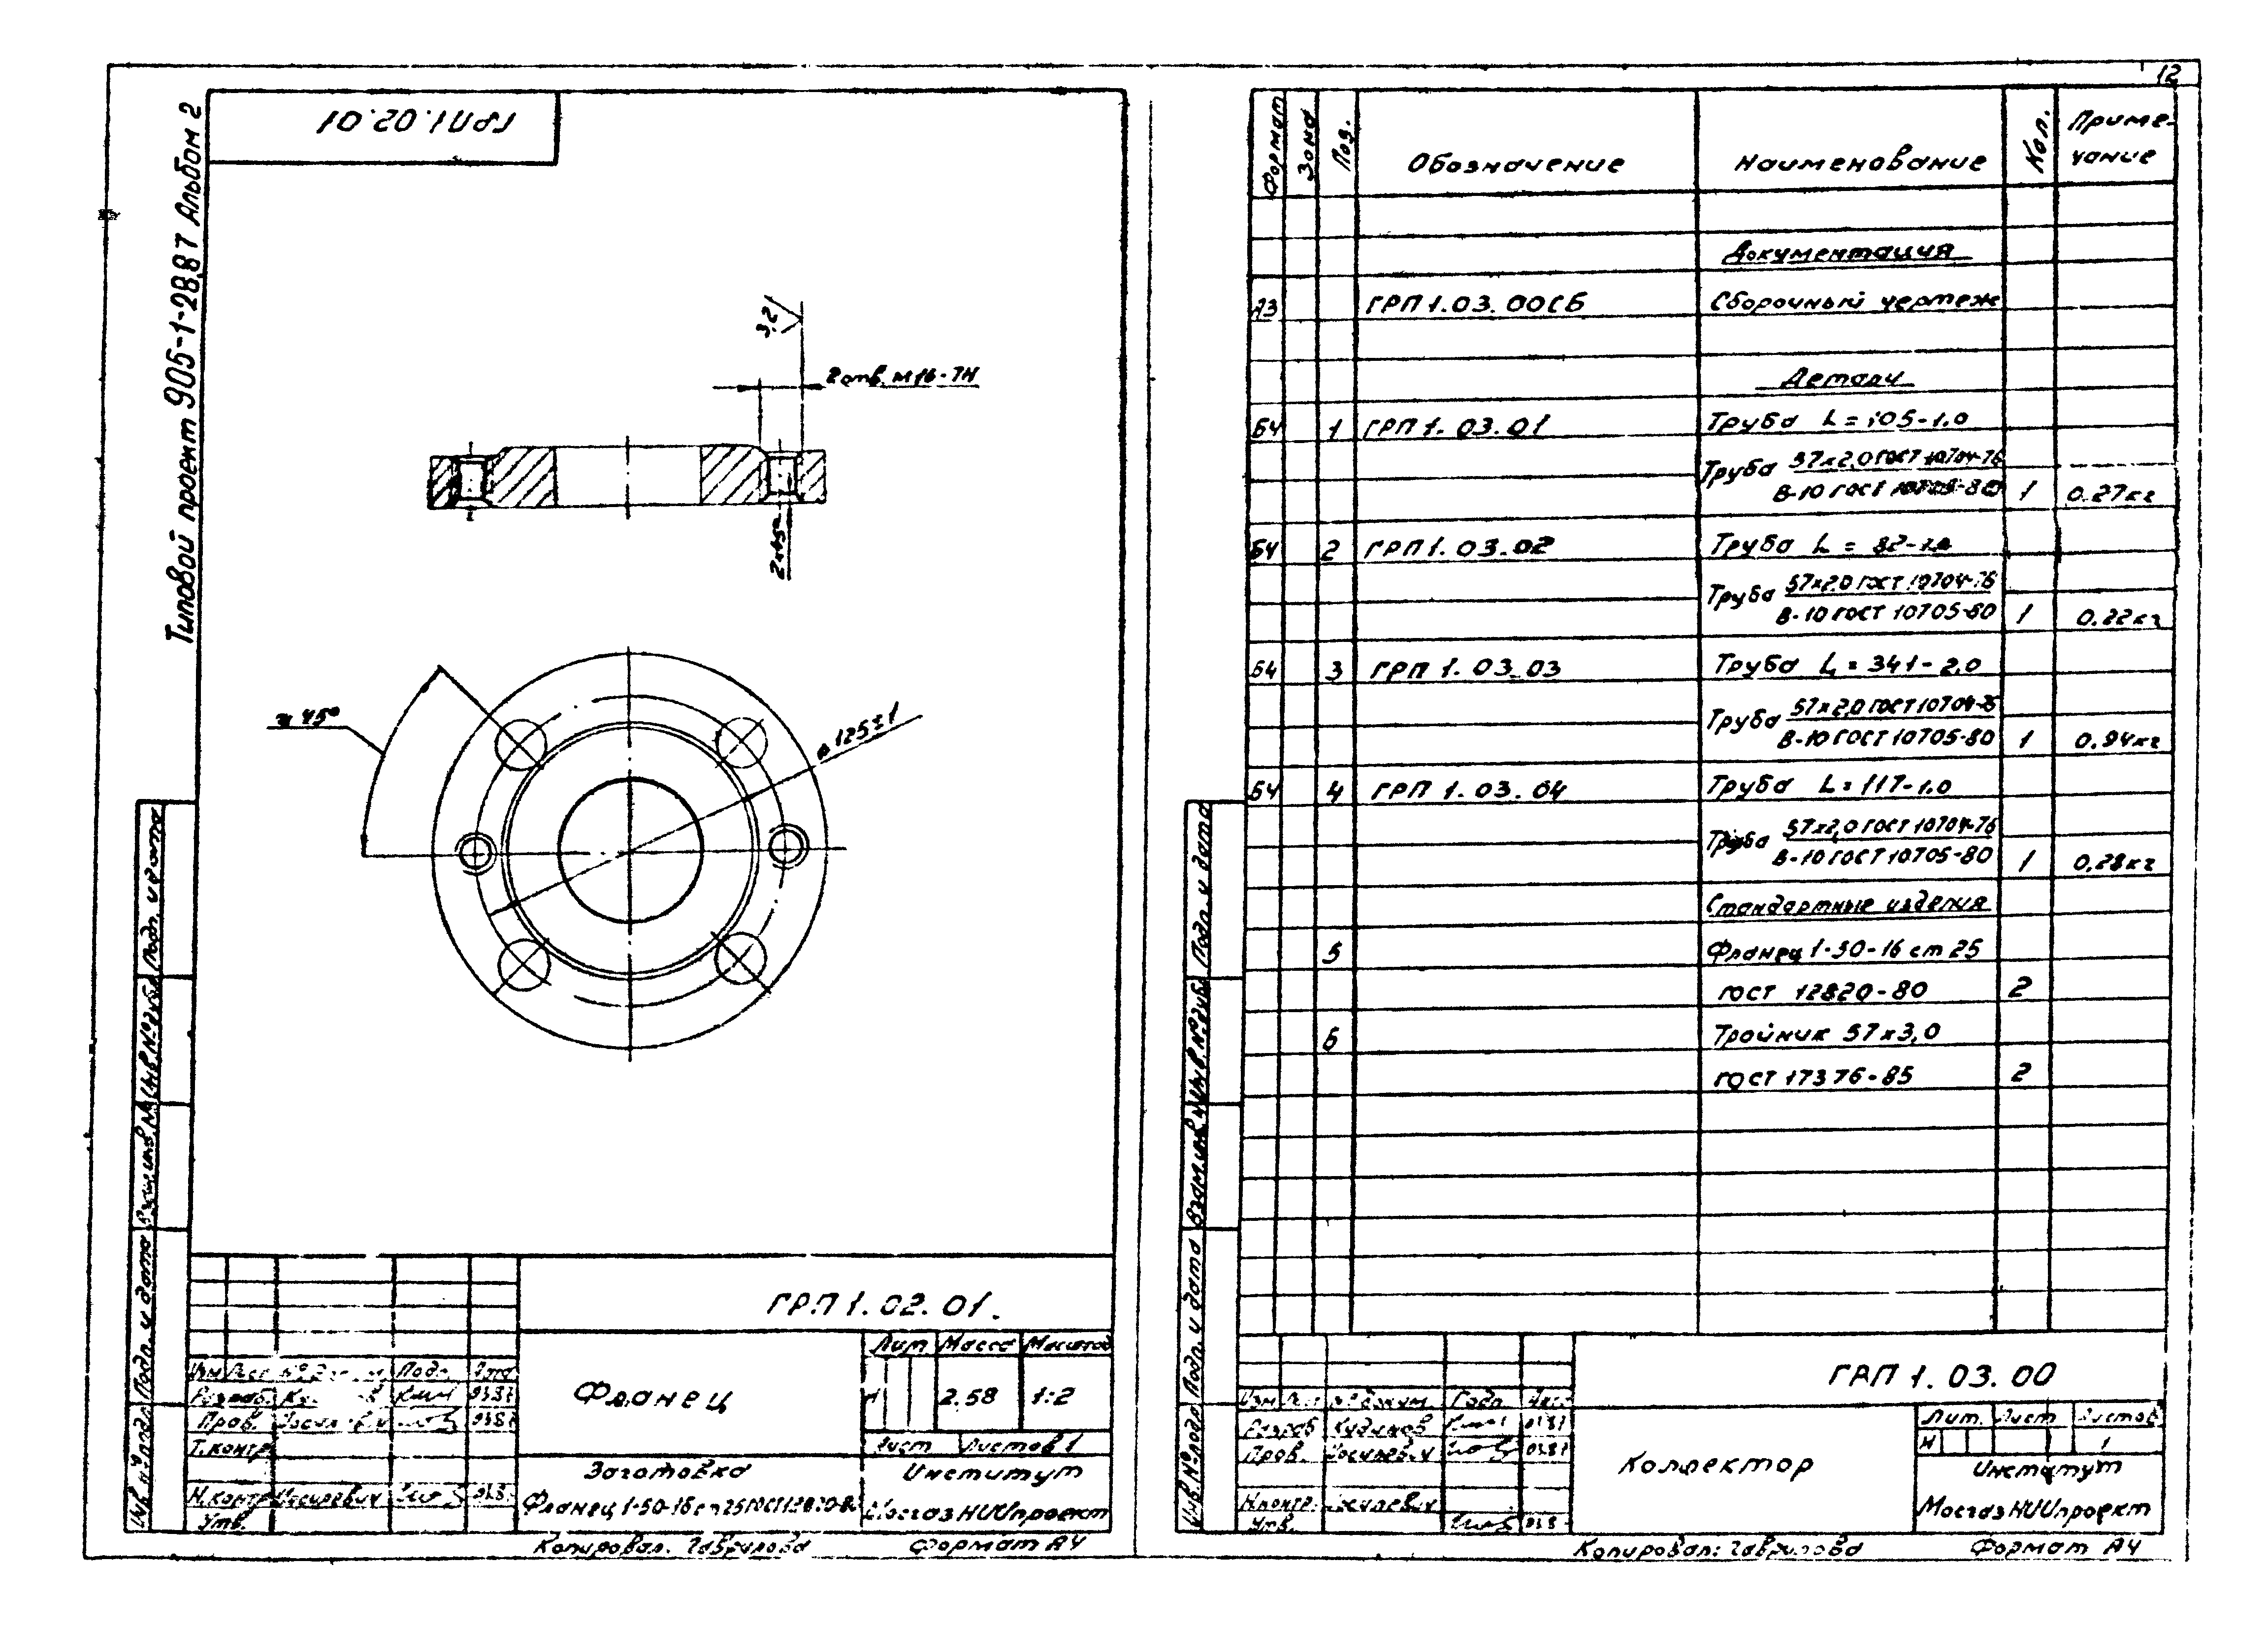 12
Типовой проект 905-1-28.87 Альбом 2
ГРП1.02.01
3,2
2 отв. М16-7Н
2×45°
45°
⌀125±1
Подп. и дата
Инв.№ дубл
Взам.инв.№
Подп. и дата
Инв.№ подл
ГРП1.02.01.
Лит Масса Масштаб
Изм Лист Подп. Дата
Разраб. 03.87
Фланец
И 2.58 1:2
Пров. 03.87
Т.контр.
Лист Листов 1
Заготовка
Институт
Н.контр. Иосилевич 03.8
Фланец 1-50-16 ст 25 ГОСТ 12820-80
МосгазНИИпроект
Утв.
Копировал: Гаврилова Формат А4
Формат Зона Поз. Обозначение Наименование Кол. Приме-
чание
Документация
А3 ГРП1.03.00СБ Сборочный чертеж
Детали
БЧ 1 ГРП1.03.01 Труба L=105-1,0
Труба 57×2,0 ГОСТ 10704-76
В-10 ГОСТ 10705-80 1 0.27кг
БЧ 2 ГРП1.03.02 Труба L=82-1,0
Труба 57×2,0 ГОСТ 10704-76
В-10 ГОСТ 10705-80 1 0.22кг
БЧ 3 ГРП1.03.03 Труба L=341-2,0
Труба 57×2,0 ГОСТ 10704-76
В-10 ГОСТ 10705-80 1 0.94кг
БЧ 4 ГРП1.03.04 Труба L=117-1,0
Труба 57×2,0 ГОСТ 10704-76
В-10 ГОСТ 10705-80 1 0,28кг
Стандартные изделия
5 Фланец 1-50-16 ст 25
ГОСТ 12820-80 2
6 Тройник 57×3,0
ГОСТ 17376-85 2
Подп. и дата
Инв.№ дубл
Взам.инв.№
Подп. и дата
Инв.№ подл
ГРП1.03.00
Изм Лист № докум. Подп. Дата
Разраб Кудинов 03.87
Лит. Лист Листов
Пров. Иосилевич 03.87
Коллектор
И 1
Институт
Н.контр. Иосилевич
МосгазНИИпроект
Утв. 03.8
Копировал: Гаврилова Формат А4